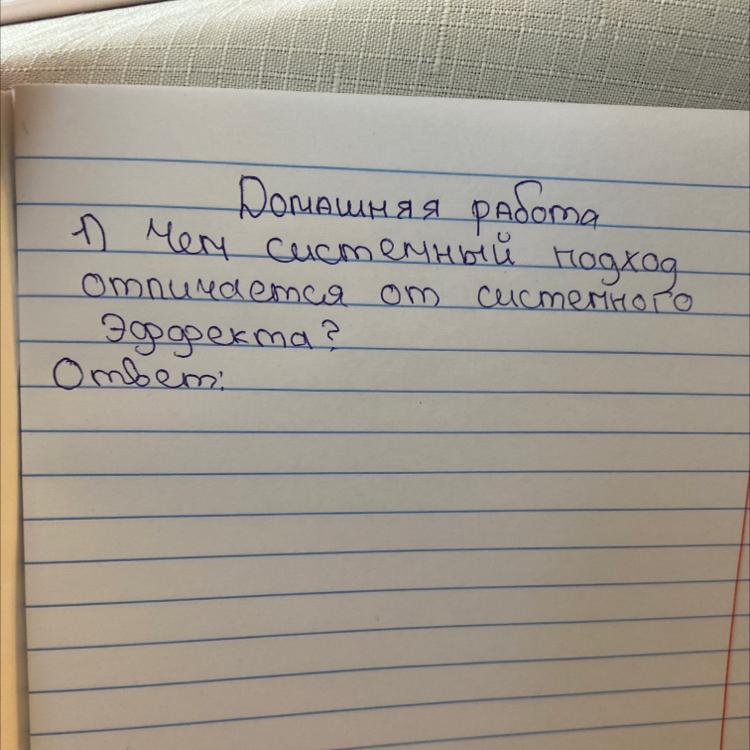 Домашняя работа
1) Чем системный подход
отличается от системного
эффекта?
Ответ: